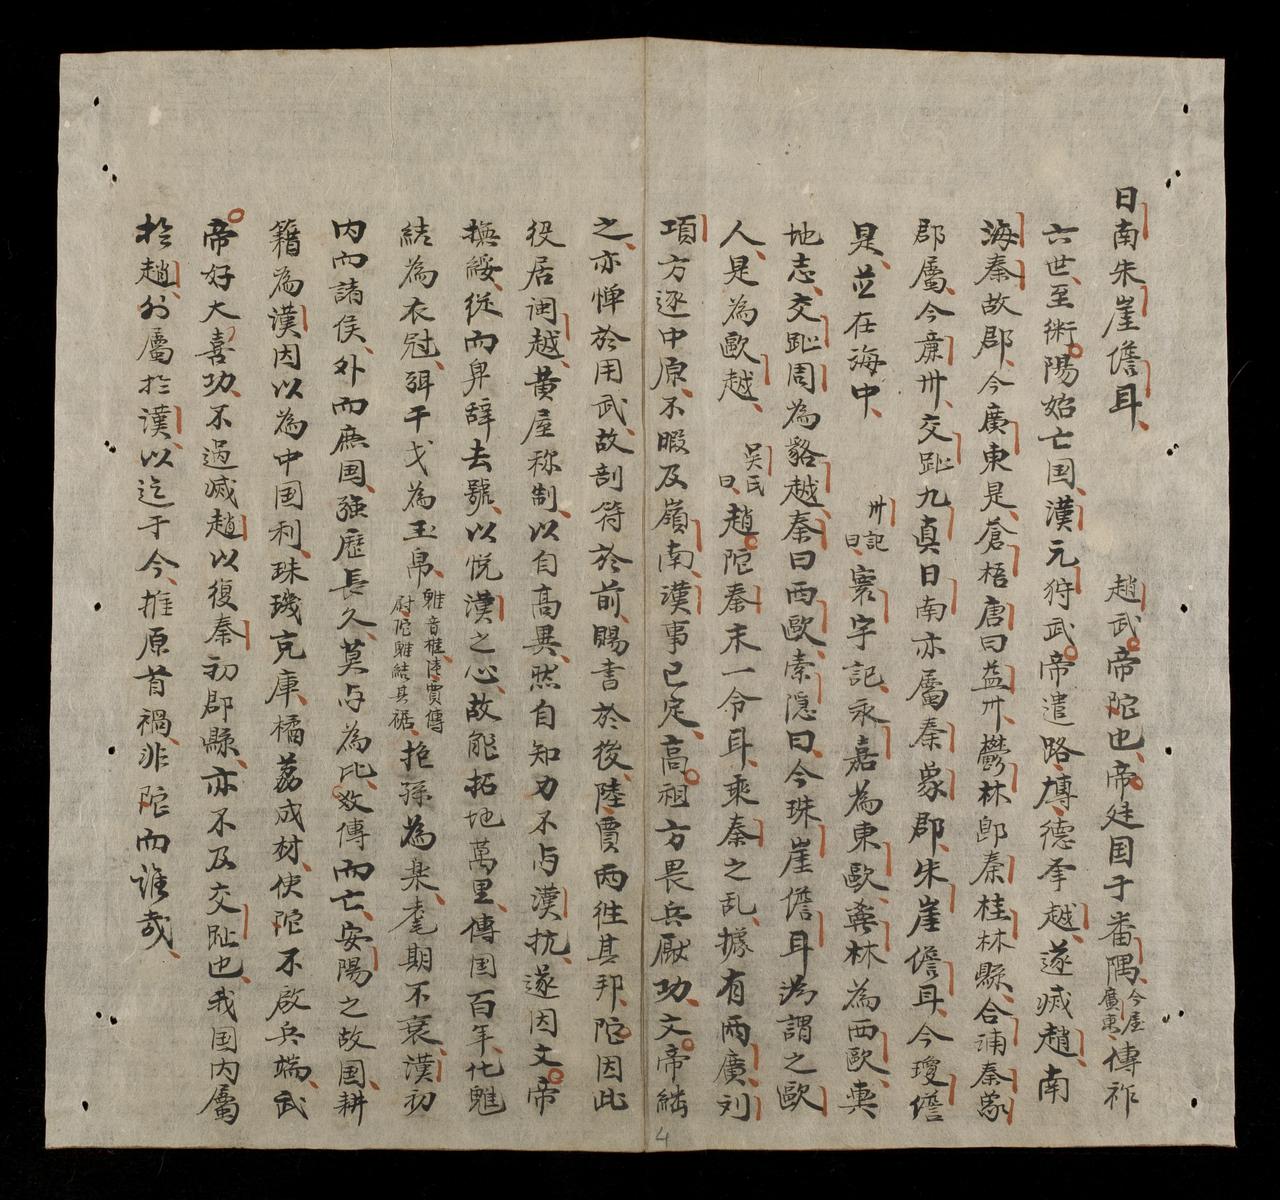 日南朱崖儋耳　趙武帝陀也帝廷国于番隅今屋廣東傳祚
六世至術陽始亡国漢元狩武帝遣路博德季越遂滅趙南
海秦故郡今廣東是蒼梧唐曰益卅鬱林即秦桂林縣合浦秦象
郡屬今亷卅交趾九真日南亦屬秦象郡朱崖儋耳今瓊儋
是並在海中　卅記曰寰宇記永嘉為東歐欝林為西歐輿
地志交趾周為貉越秦曰西歐索隐曰今珠崖儋耳為謂之歐
人是為歐越　吳氏曰趙陀秦末一令耳乘秦之乱據有兩廣刘
項方逐中原不暇及嶺南漢事已定高祖方畏兵厭功文帝継
之亦憚於用武故剖符於前賜書於後陸賈兩徃其邦陀因此
役居闽越黄屋称制以自高異然自知力不与漢抗遂因文帝
撫綏從而卑辞去號以悦漢之心故能拓地萬里傳国百年化魋
結為衣冠弭干戈為玉帛魋音椎陸賈傳尉陀魋結其裾抱孫為楽耄期不衰漢初
内而諸侯外而庶国強歷長久莫与為比数傳而亡安陽之故国耕
籍為漢因以為中国利珠璣克庫橘荔成材使陀不啟兵端武
帝好大喜功不過滅趙以復秦初郡縣亦不及交趾也我国内屬
於趙外屬於漢以迄于今推原首禍非陀而誰哉
4